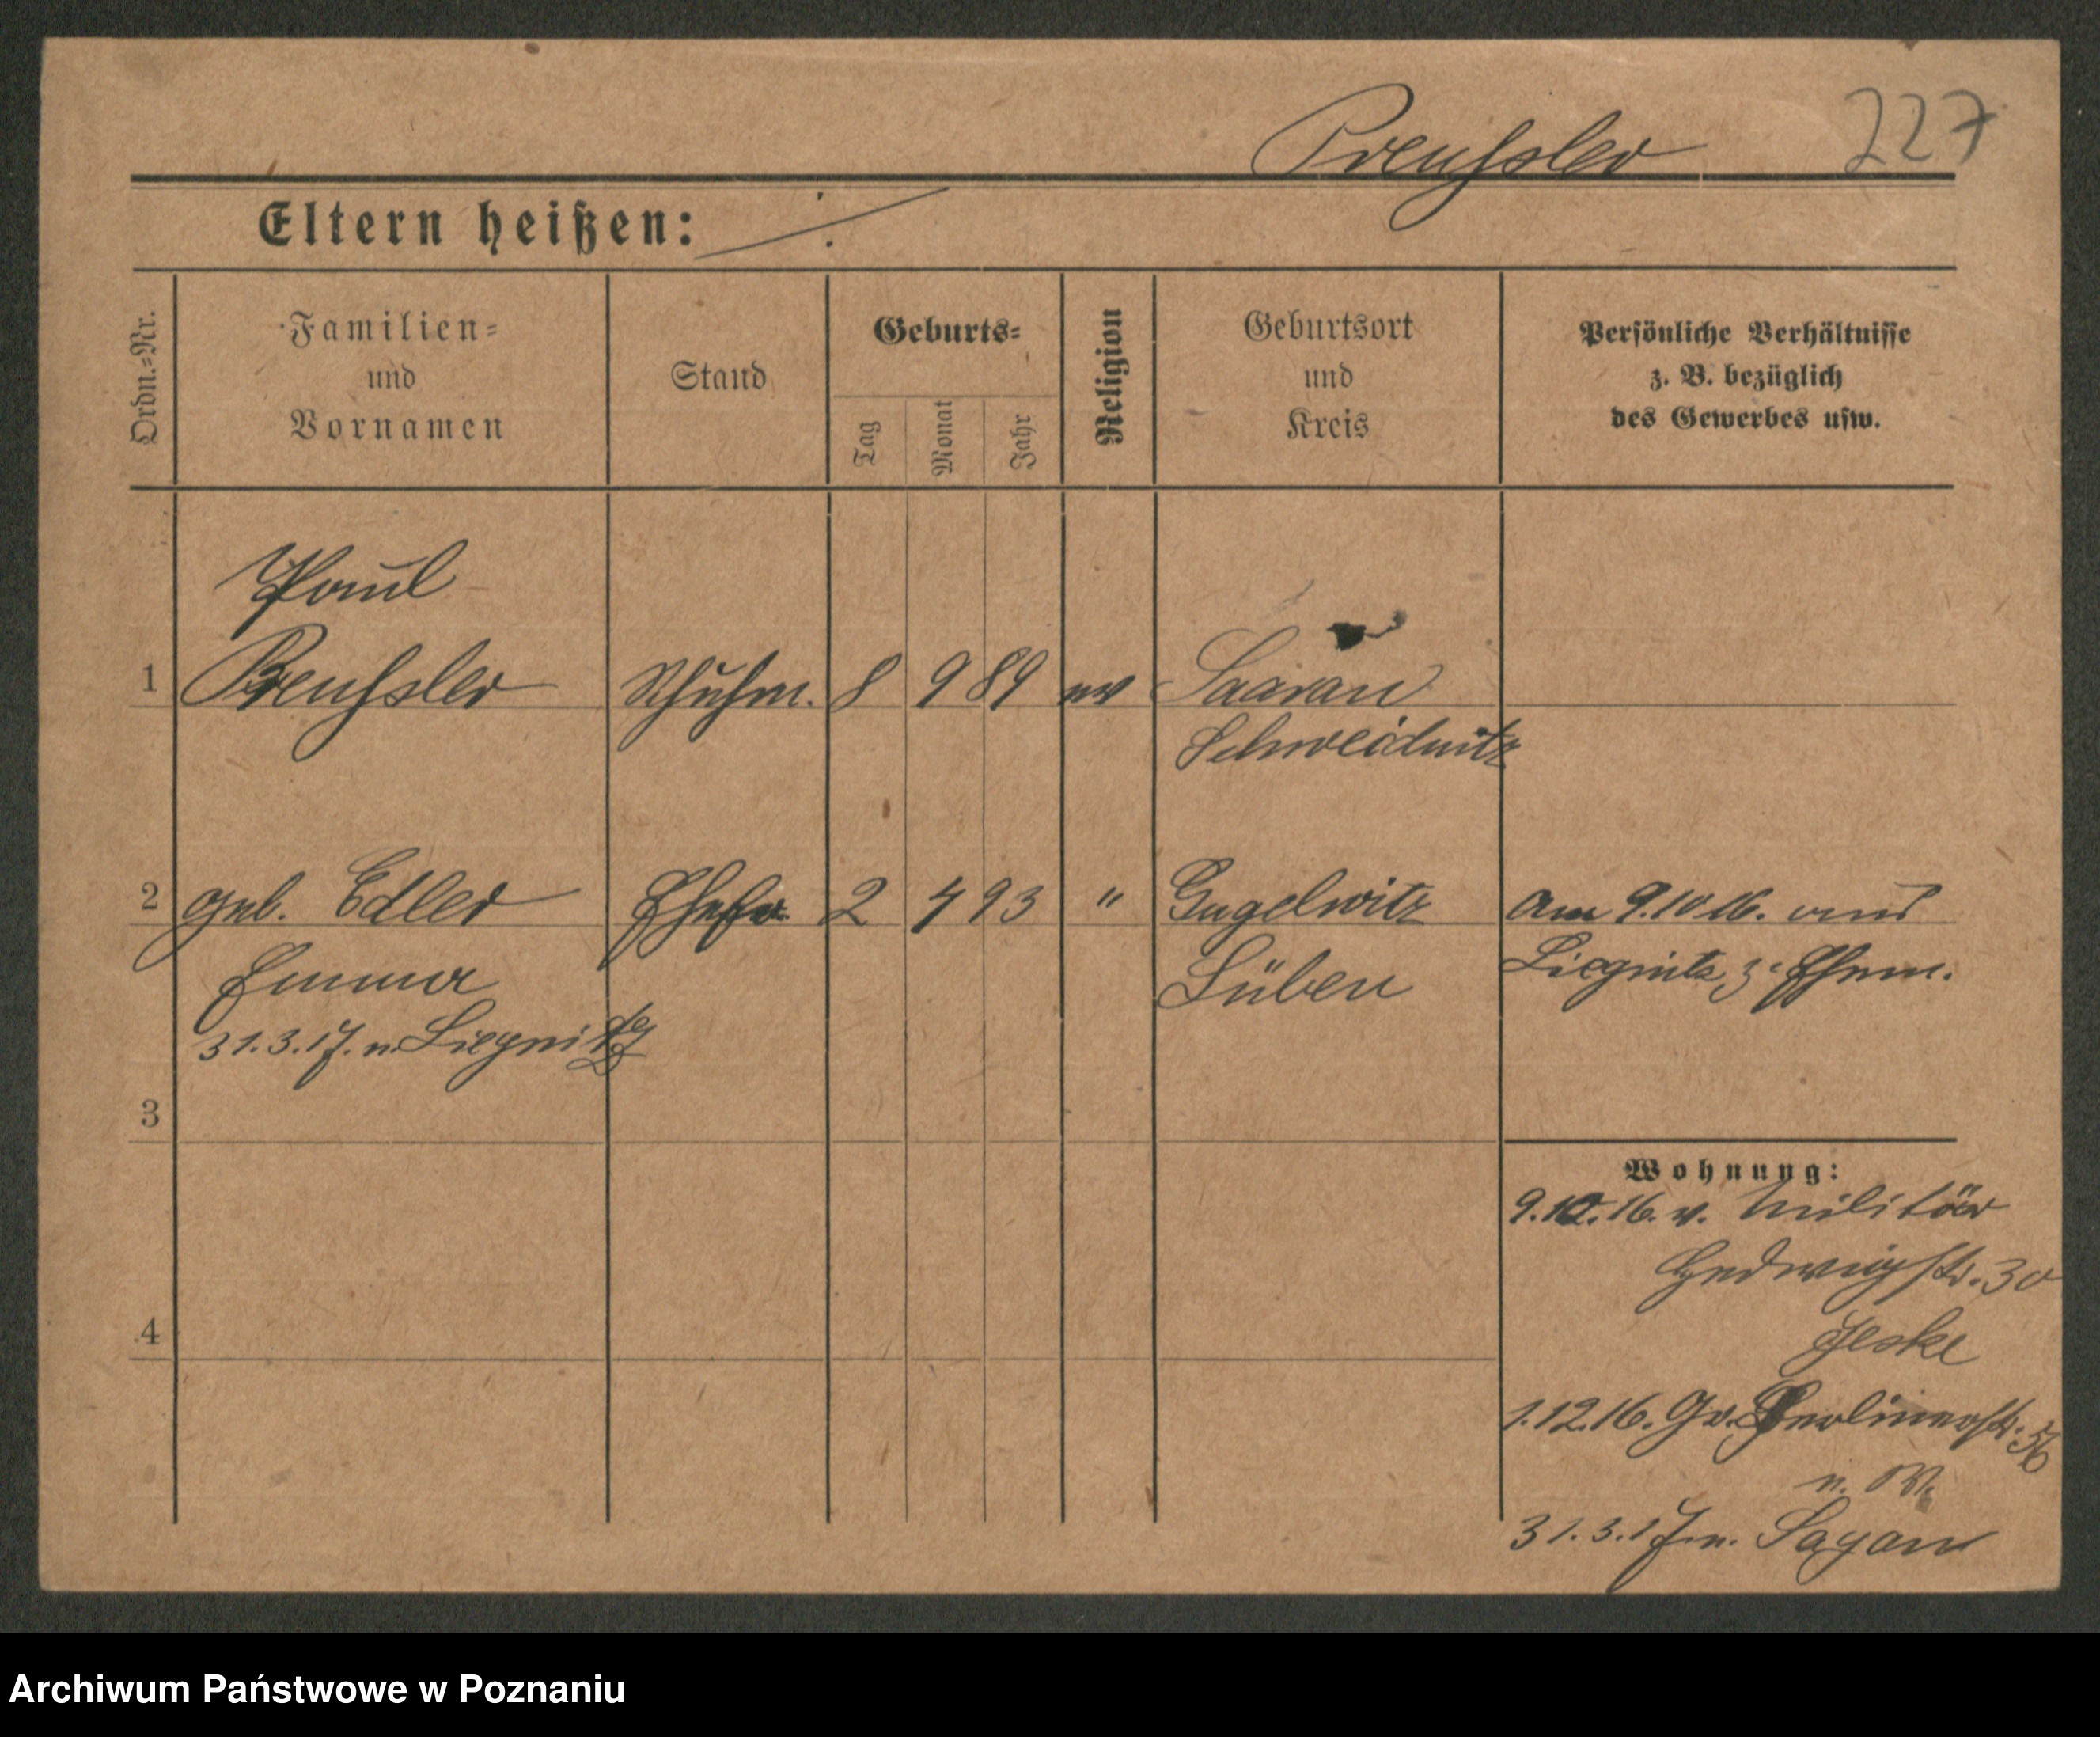 Preußsler 227
Eltern heißen: ./.
Ordn.=Nr.
Familien=
und
Vornamen
Stand
Geburts=
Tag
Monat
Jahr
Religion
Geburtsort
und
Kreis
Persönliche Verhältnisse
z. B. bezüglich
des Gewerbes usw.
Paul
1 Preußsler Schuhm. 8 9 89 ev Saarau
Schweidnitz
2 geb. Edler Ehefr. 2 4 93 " Gugelwitz Am 9.10 16. aus
Emma Lüben Liegnitz z. Ehem.
31.3.17. n. Liegnitz
3
Wohnung:
9.10.16. v. Militär
Hedwigstr. 30
Jeske
4
1.12.16. Gr. Berlinerstr. 56
n. W.
31.3.17 n. Sagan
Archiwum Państwowe w Poznaniu